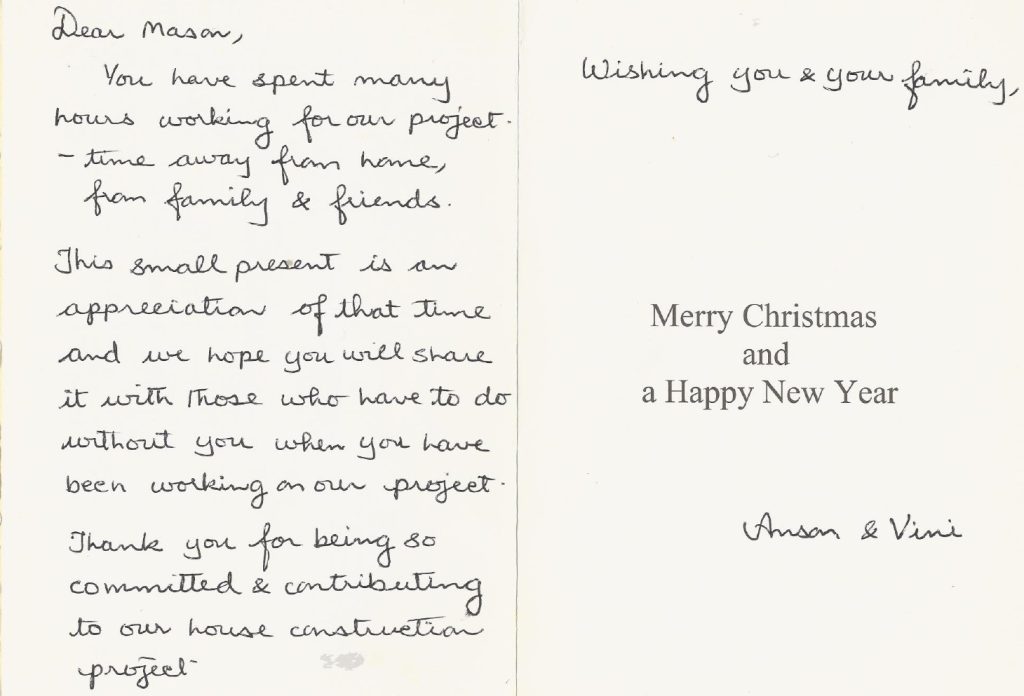 Dear Mason,
You have spent many
hours working for our project.
- time away from home,
from family & friends.
This small present is an
appreciation of that time
and we hope you will share
it with those who have to do
without you when you have
been working on our project.
Thank you for being so
committed & contributing
to our house construction
project
Wishing you & your family,
Merry Christmas
and
a Happy New Year
Anson & Vini